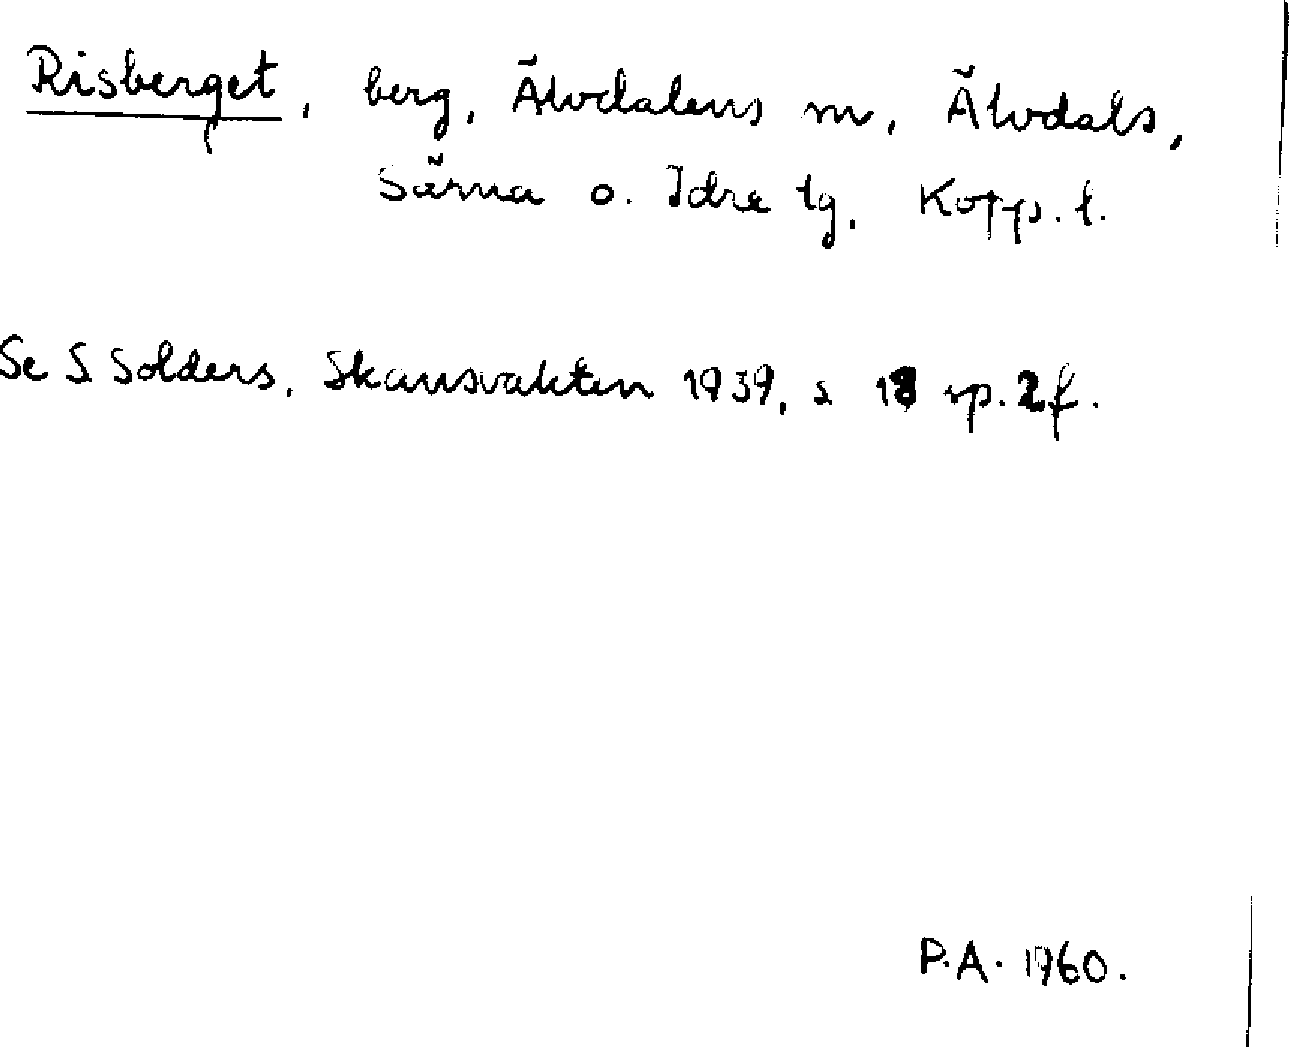 Risberget, berg, Älvdalens sn, Älvdals,
Särna o. Idre tg, Kopp. l.
Se S Solders, Skansvakten 1939, s 18 sp. 2 f.
P.A. 1960.